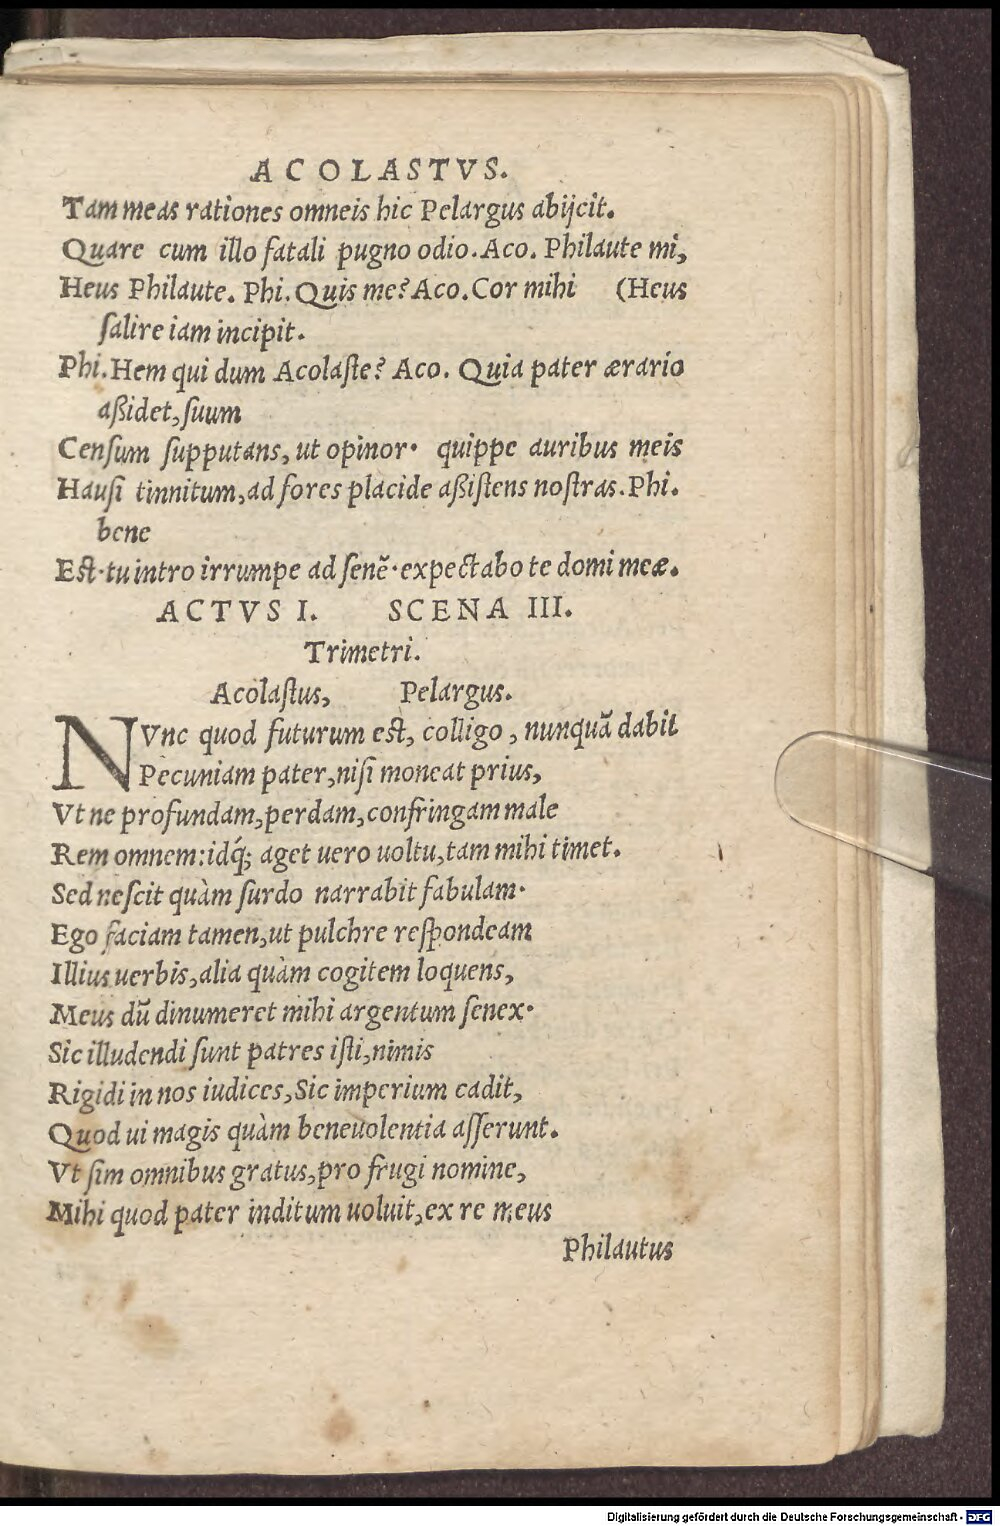 ACOLASTVS.
Tam meas rationes omneis hic Pelargus abijcit.
Quare cum illo fatali pugno odio. Aco. Philaute mi,
Heus Philaute. Phi. Quis me? Aco. Cor mihi (Heus
ſalire iam incipit.
Phi. Hem qui dum Acolaſte? Aco. Quia pater ærario
aßidet, ſuum
Cenſum ſupputans, ut opinor· quippe auribus meis
Hauſi tinnitum, ad fores placide aßiſtens noſtras. Phi.
bene
Eſt· tu intro irrumpe ad ſenẽ· expectabo te domi meæ.
ACTVS I. SCENA III.
Trimetri.
Acolaſtus, Pelargus.
NVnc quod futurum eſt, colligo, nunquã dabit
Pecuniam pater, niſi moneat prius,
Vt ne profundam, perdam, confringam male
Rem omnem: idq́; aget uero uoltu, tam mihi timet.
Sed neſcit quàm ſurdo narrabit fabulam·
Ego faciam tamen, ut pulchre reſpondeam
Illius uerbis, alia quàm cogitem loquens,
Meus dũ dinumeret mihi argentum ſenex·
Sic illudendi ſunt patres iſti, nimis
Rigidi in nos iudices, Sic imperium cadit,
Quod ui magis quàm beneuolentia aſſerunt.
Vt ſim omnibus gratus, pro frugi nomine,
Mihi quod pater inditum uoluit, ex re meus
Philautus
Digitalisierung gefördert durch die Deutsche Forschungsgemeinschaft - DFG